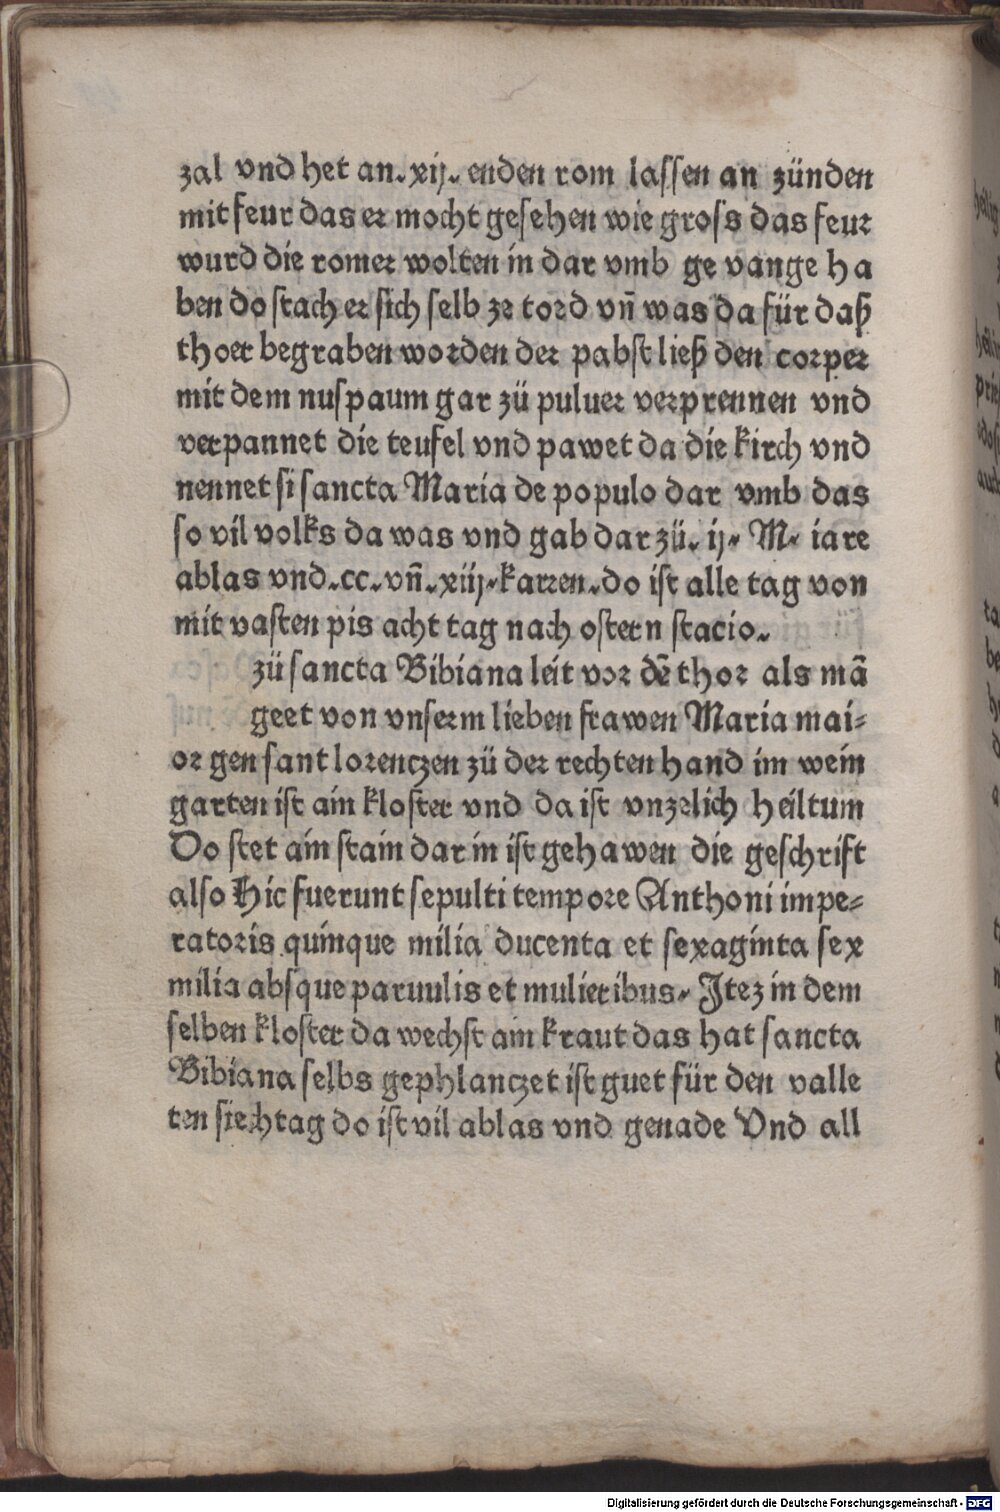 zal vnd het an. xij. enden rom lassen an zünden
mit feur das er mocht gesehen wie gross das feur
wurd die romer wolten in dar vmb ge vange ha
ben do stach er sich selb ze tord vn̄ was da für daß
thoer begraben worden der pabst ließ den corper
mit dem nuspaum gar zü puluer verprennen vnd
verpannet die teufel vnd pawet da die kirch vnd
nennet si sancta Maria de populo dar vmb das
so vil volks da was vnd gab dar zü. ij. M. iare
ablas vnd. cc. vn̄. xiij. karren. do ist alle tag von
mit vasten pis acht tag nach ostern stacio.
zü sancta Bibiana leit vor dē thor als mā
geet von vnserm lieben frawen Maria mai-
or gen sant lorenczen zü der rechten hand im wein
garten ist ain kloster vnd da ist vnzelich heiltum
Do stet ain stain dar in ist gehawen die geschrift
also Hic fuerunt sepulti tempore Anthoni impe-
ratoris quinque milia ducenta et sexaginta sex
milia absque paruulis et mulieribus. Itez in dem
selben kloster da wechst ain kraut das hat sancta
Bibiana selbs gephlanczet ist guet für den valle
ten siechtag do ist vil ablas vnd genade Vnd all
Digitalisierung gefördert durch die Deutsche Forschungsgemeinschaft - DFG